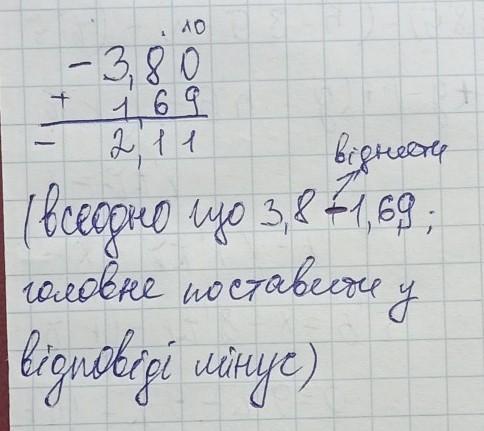 . 10
- 3,80
+ 1 69
- 2,11
відняти
(всеодно що 3,8 - 1,69;
головне поставити у
відповіді мінус)